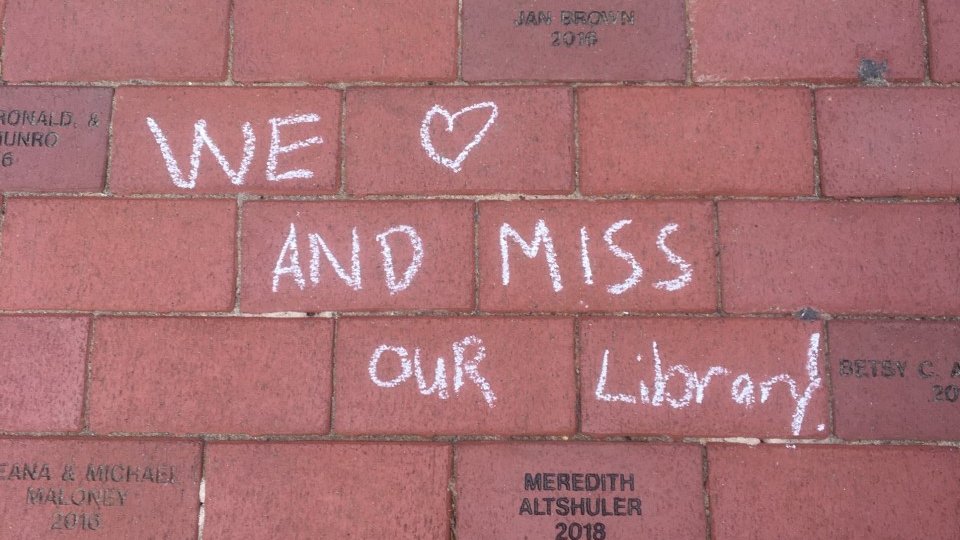 JAN BROWN
2016
RONALD, &
MUNRO
6
WE ♡
AND MISS
OUR Library!
BETSY C. A
20
EANA & MICHAEL
MALONEY
2016
MEREDITH
ALTSHULER
2018